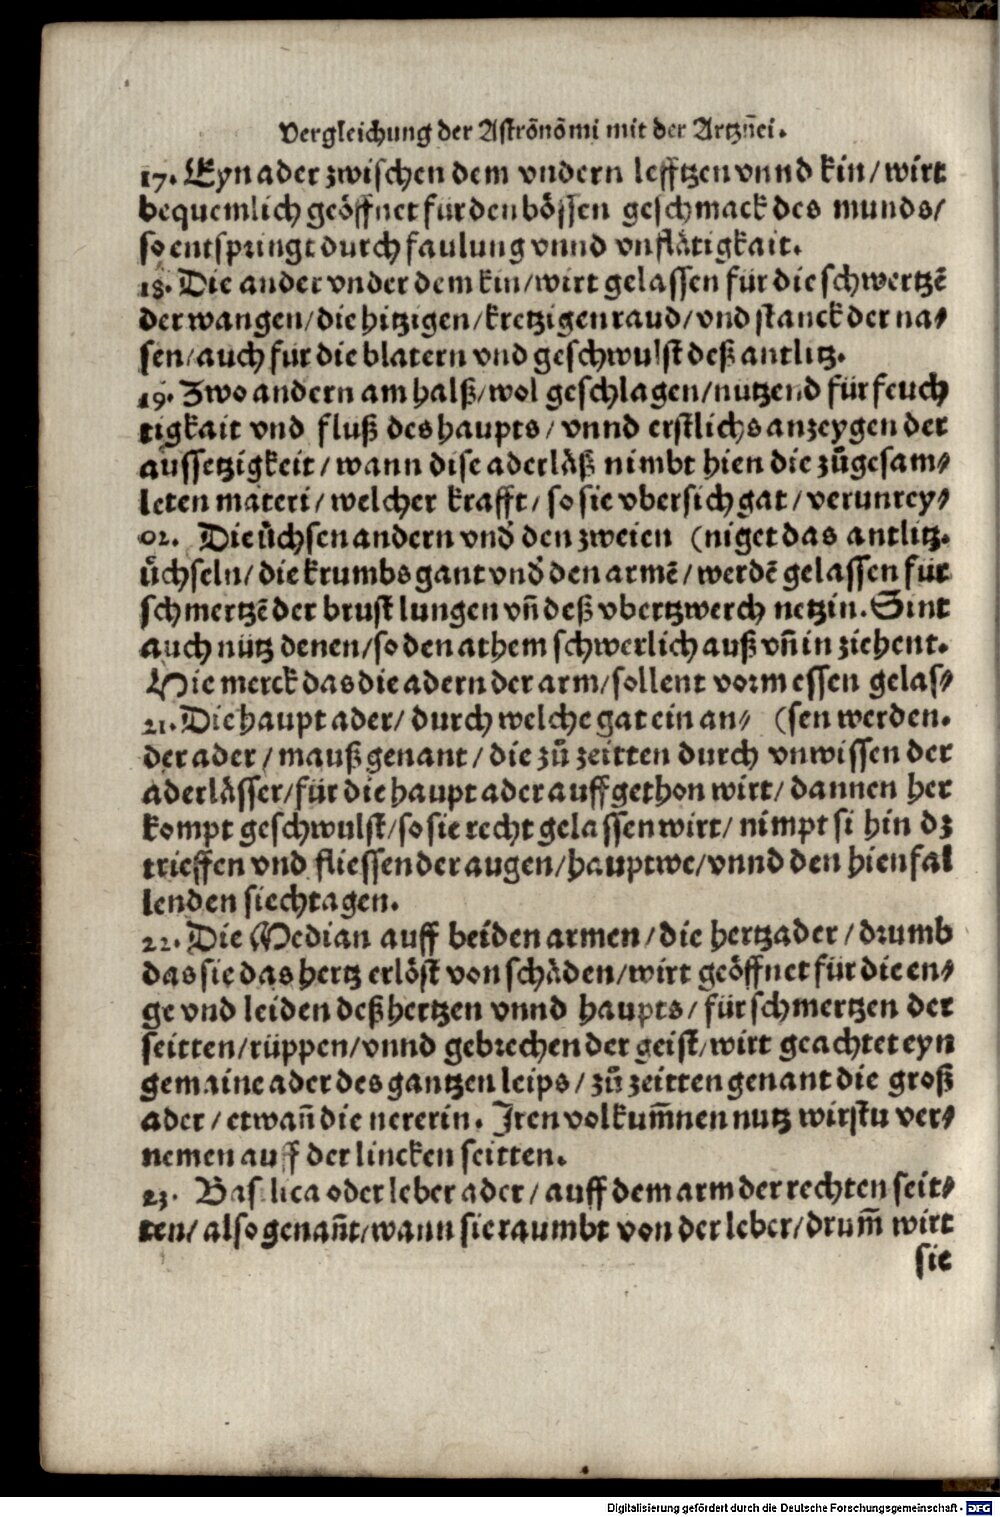 Vergleichung der Astrōnōmi mit der Artzn̄ei.
17. Eyn ader zwischen dem vndern lefftzen vnnd kin/ wirt
bequemlich geöffnet für den bössen geschmack des munds/
so entspringt durch faulung vnnd vnflätigkait.
18. Die ander vnder dem kin/ wirt gelassen für die schwertzē
der wangen/ die hitzigen/ kretzigen raud/ vnd stanck der na⸗
sen/ auch für die blatern vnd geschwulst deß antlitz.
19. Zwo andern am halß/ wol geschlagen/ nutzend für feuch
tigkait vnd fluß des haupts/ vnnd erstlichs anzeygen der
aussetzigkeit/ wann dise aderläß nimbt hien die zůgesam⸗
leten materi/ welcher krafft/ so sie vbersich gat/ verunrey⸗
02. Die üchsen andern vnd̕ den zweien (niget das antlitz.
üchseln/ die krumbs gant vnd̕ den armē/ werdē gelassen für
schmertzē der brust lungen vn̄ deß vbertzwerch netzin. Sint
auch nütz denen/ so den athem schwerlich auß vn̄ in ziehent.
Hie merck das die adern der arm/ sollent vorm essen gelas⸗
21. Die haupt ader/ durch welche gat ein an⸗ (sen werden.
der ader/ mauß genant/ die zů zeitten durch vnwissen der
aderlässer/ für die haupt ader auffgethon wirt/ dannen her
kompt geschwulst/ so sie recht gelassen wirt/ nimpt si hin dz
trieffen vnd fliessen der augen/ hauptwe/ vnnd den hienfal
lenden siechtagen.
22. Die Median auff beiden armen/ die hertzader/ drumb
das sie das hertz erlöst von schäden/ wirt geöffnet für die en⸗
ge vnd leiden deß hertzen vnnd haupts/ für schmertzen der
seitten/ rüppen/ vnnd gebrechen der geist/ wirt geachtet eyn
gemaine ader des gantzen leips/ zů zeitten genant die groß
ader/ etwan̄ die nererin. Iren volkum̄nen nutz wirstu ver⸗
nemen auff der lincken seitten.
23. Basilica oder leber ader/ auff dem arm der rechten seit⸗
ten/ also genan̄t/ wann sie raumbt von der leber/ drum̄ wirt
sie
Digitalisierung gefördert durch die Deutsche Forschungsgemeinschaft - DFG